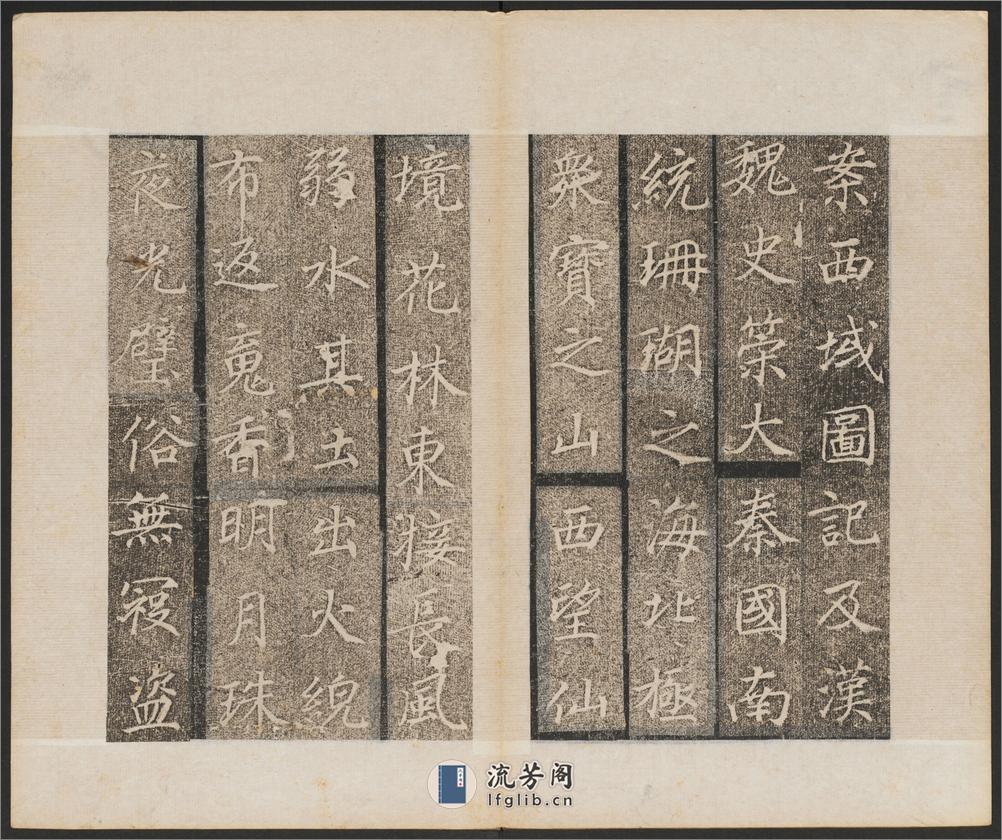 桉西域圖記及漢
魏史策大秦國南
統珊瑚之海北極
衆寶之山西望仙
境花林東接長風
弱水其土出火綄
布返魂香明月珠
夜光璧俗無寇盜
流芳阁
lfglib.cn